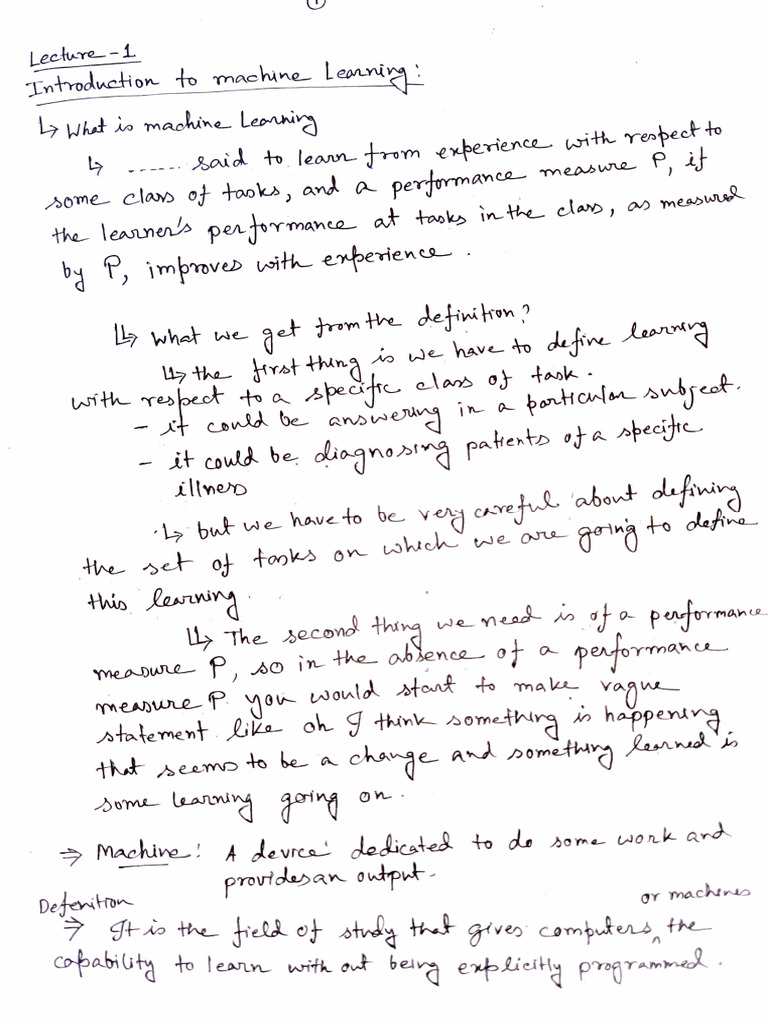 1
Lecture-1
Introduction to machine Learning:
↳ What is machine Learning
↳ ...... said to learn from experience with respect to
some class of tasks, and a performance measure P, if
the learner's performance at tasks in the class, as measured
by P, improves with experience.
↳ What we get from the definition?
↳ the first thing is we have to define learning
with respect to a specific class of task.
- it could be answering in a particular subject.
- it could be diagnosing patients of a specific
illness
↳ but we have to be very careful about defining
the set of tasks on which we are going to define
this learning.
↳ The second thing we need is of a performance
measure P, so in the absence of a performance
measure P you would start to make vague
statement like oh I think something is happening
that seems to be a change and something learned is
some learning going on.
⇒ Machine: A device dedicated to do some work and
provides an output.
Defenition
or machines
⇒ It is the field of study that gives computers ^ the
capability to learn with out being explicitly programmed.